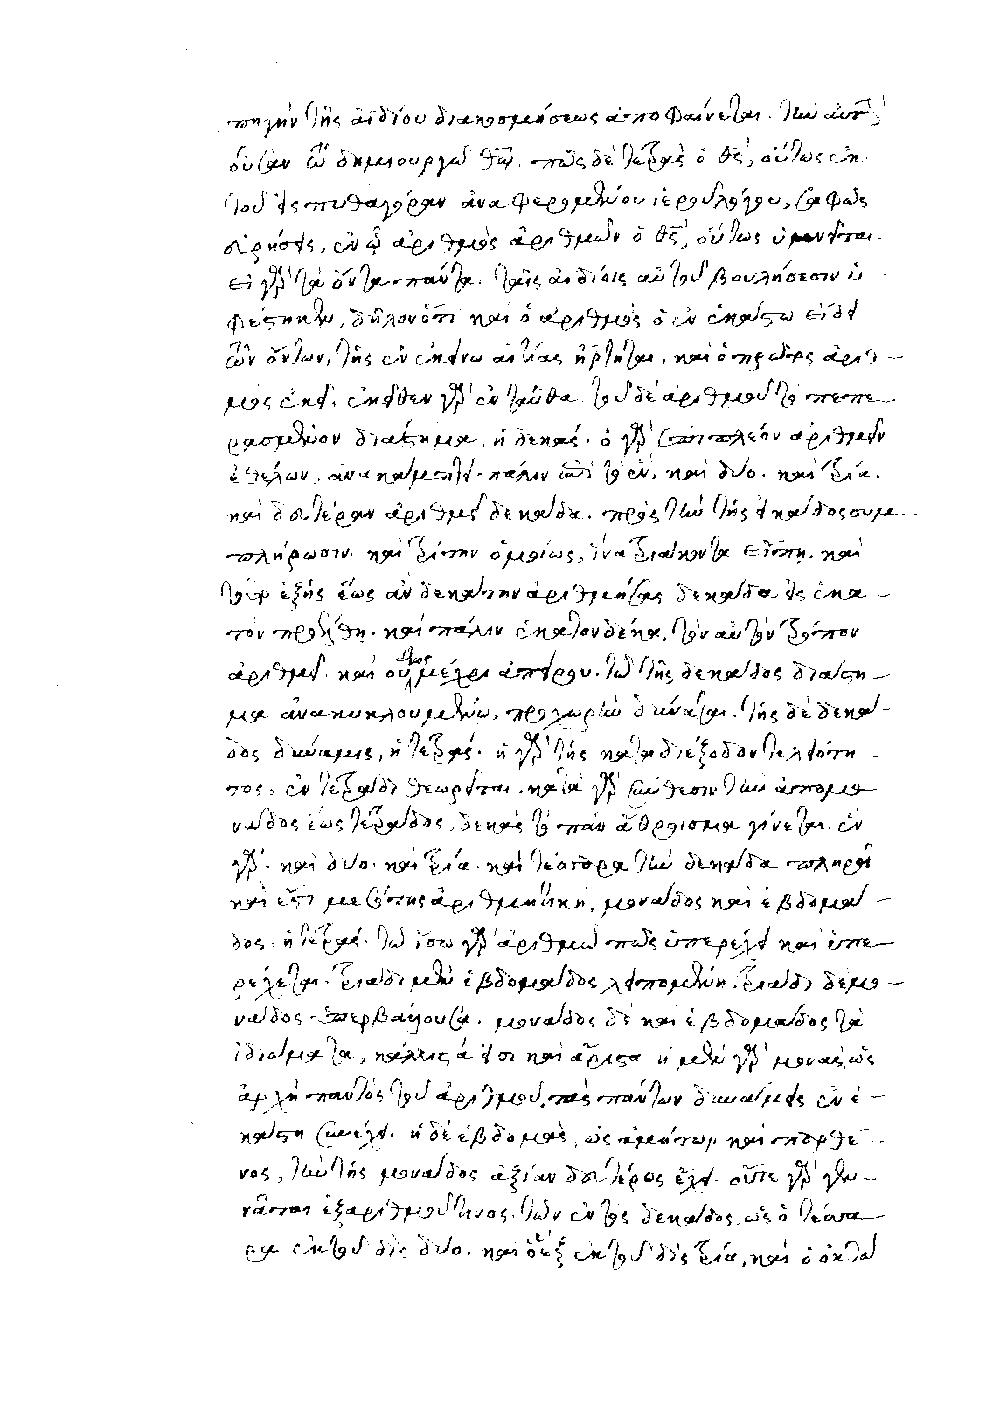 πηγὴν τῆς ἀϊδίου διακοσμήσεως ἀποφαίνεται. τὴν αὐτὴν
οὖσαν τῷ δημιουργῷ θεῷ. πῶς δὲ τετρὰς ὁ θς, οὕτως ἐκ
τοῦ εἰς πυθαγόραν ἀναφερομένου ἱεροῦ λόγου, σαφῶς
εὑρήσεις, ἐν ᾧ ἀριθμὸς ἀριθμῶν ὁ θς, οὕτως ὑμνεῖται.
εἰ γὰρ τὰ ὄντα πάντα. ταῖς ἀϊδίοις αὐτοῦ βουλήσεσιν ὑ
φέστηκεν, δῆλον ὅτι καὶ ὁ ἀριθμὸς ὁ ἐν ἑκάστω εἴδει
τῶν ὄντων, τῆς ἐν ἐκείνω αἰτίας ἤρτηται, καὶ ὁ πρῶτος ἀριθ-
μὸς ἐκεῖ. ἐκεῖθεν γὰρ ἐνταῦθα. τοῦ δὲ ἀριθμοῦ τὸ πεπε-
ρασμένον διάστημα, ἡ δεκάς. ὁ γὰρ ἐπιπλέον ἀριθμεῖν
ἐθέλων, ἀνακάμπτει πάλιν ἐπὶ τὸ ἕν. καὶ δύο. καὶ τρία.
καὶ δευτέραν ἀριθμεῖ δεκάδα. πρὸς τὴν τῆς εἰκάδος συμ-
πλήρωσιν. καὶ τρίτην ὁμοίως, ἵνα τριάκοντα εἴπη. καὶ
τοῦθ' ἑξῆς ἕως ἂν δεκάτην ἀριθμήσας δεκάδα εἰς ἑκα-
τὸν προέλθη. καὶ πάλιν ἑκατονδέκα, τὸν αὐτὸν τρόπον
ἀριθμεῖ. καὶ οὕτως μέχρι ἀπείρου. τῶ τῆς δεκάδος διαστή-
μα ἀνακυκλουμένω, προχωρεῖν δύναται. τῆς δὲ δεκά-
δος δύναμις, ἡ τετράς. ἡ γὰρ τῆς κατὰ διέξοδον τελειότη-
τος, ἐν τετράδι θεωρεῖται. κατὰ γὰρ σύνθεσιν τὴν ἀπὸ μο-
νάδος ἕως τετράδος, δεκὰς τὸ πᾶν ἄθροισμα γίνεται. ἓν
γὰρ. καὶ δύο. καὶ τρία. καὶ τέσσαρα τὴν δεκάδα πληροῖ
καὶ ἔστι μεσότης ἀριθμητικὴ, μονάδος καὶ ἑβδομά-
δος. ἡ τετράς. τῶ ἴσω γὰρ ἀριθμῶ πως ὑπερέχει καὶ ὑπε-
ρέχεται. τριάδι μὲν ἑβδομάδος λειπομένη. τριάδι δὲ μο-
νάδος ὑπερβαίνουσα. μονάδος δὲ καὶ ἑβδομάδος τὰ
ἰδιώματα, κάλλιστά εἰσι καὶ ἄριστα ἡ μὲν γὰρ μονὰς, ὡς
ἀρχὴ παντὸς τοῦ ἀριθμοῦ, τὰς πάντων δυνάμεις ἐν ἑ-
κάστη συνέχει. ἡ δὲ ἑβδομὰς, ὡς ἀμήτωρ καὶ παρθέ-
νος, τὴν τῆς μονάδος ἀξίαν δευτέρως ἔχει. οὔτε γὰρ γεν-
νᾶται ἐξ ἀριθμοῦ τινος. τῶν ἐντὸς δεκάδος, ὡς ὁ τέσσα-
ρα ἐκ τοῦ δὶς δύο. καὶ ὁ ἓξ ἐκ τοῦ δὶς τρία, καὶ ὁ ὀκτὼ